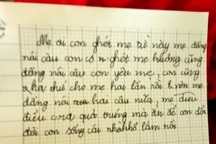 Mẹ ơi con ghét mẹ từ này mẹ đừng
nói câu con có ghét mẹ không cũng
đừng nói câu con yêu mẹ, con cũng
tha cho mẹ hai lần rồi nên mẹ
đừng nói hai câu nữa, mẹ
điều quá trưng mà ăn để con
con sống cái nhà lắm rồi